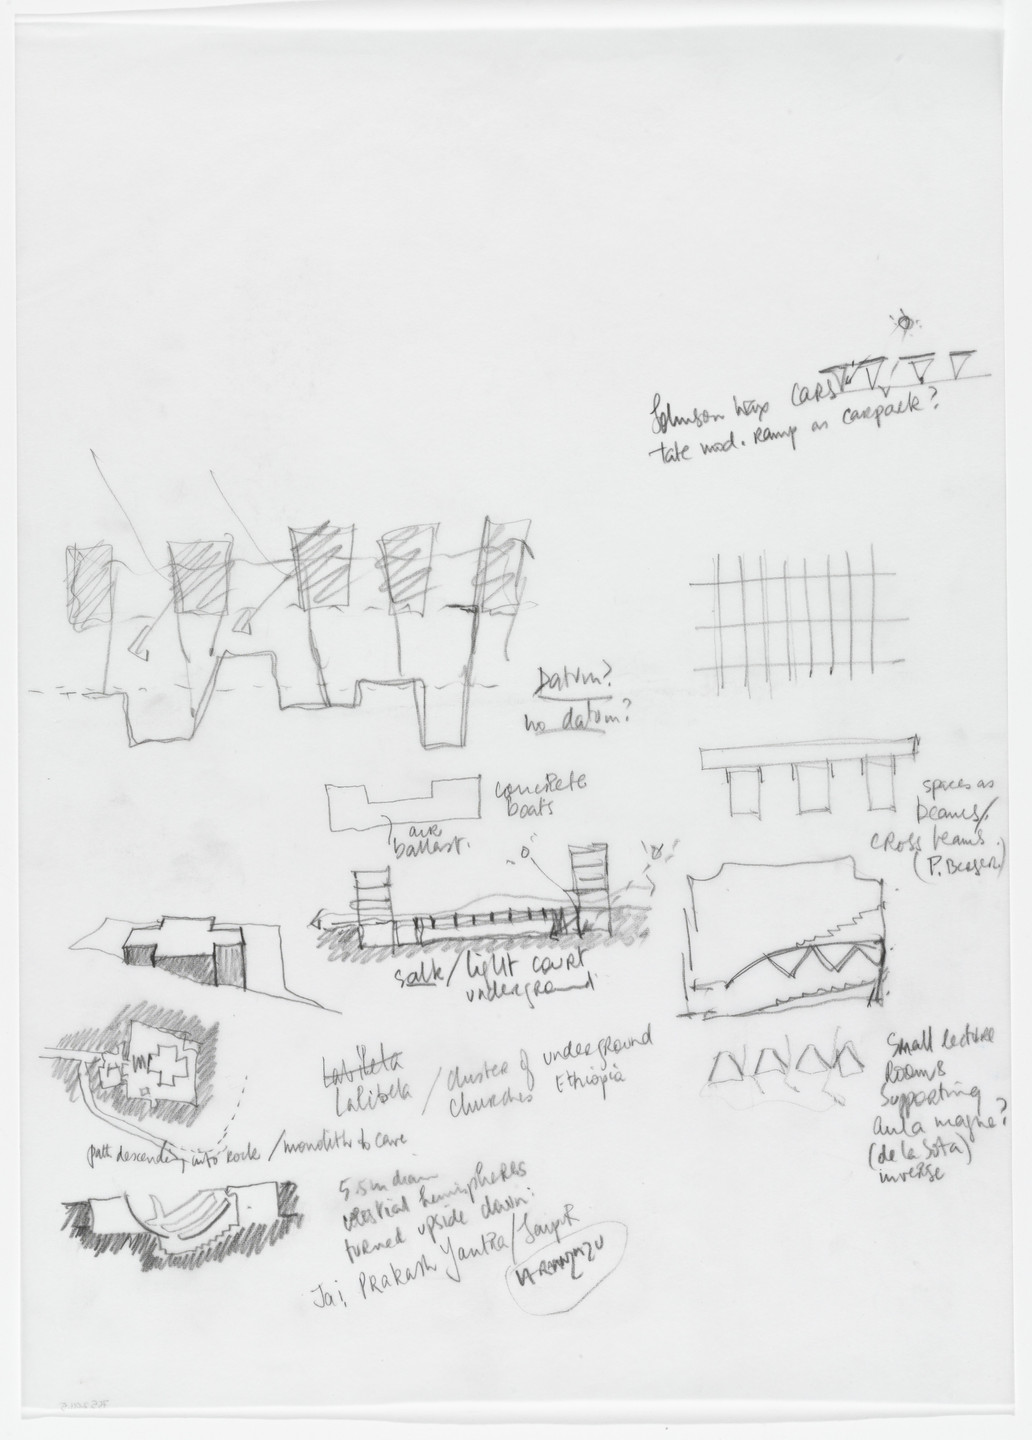 Johnson Wax CARS
tate mod. Ramp as carpark?
Datum?
no datum?
concrete
boats
air
ballast.
spaces as
beams/
cross beams.
(P. Berger)
salk/light court
underground
Lalibela / cluster of underground
churches Ethiopia
path descending into rock / monolith to cave
small lecture
rooms
supporting
aula magna?
(de la Sota)
inverse
5.5m diam
celestial hemispheres
turned upside down:
Jai Prakash Yantra/Jaipur